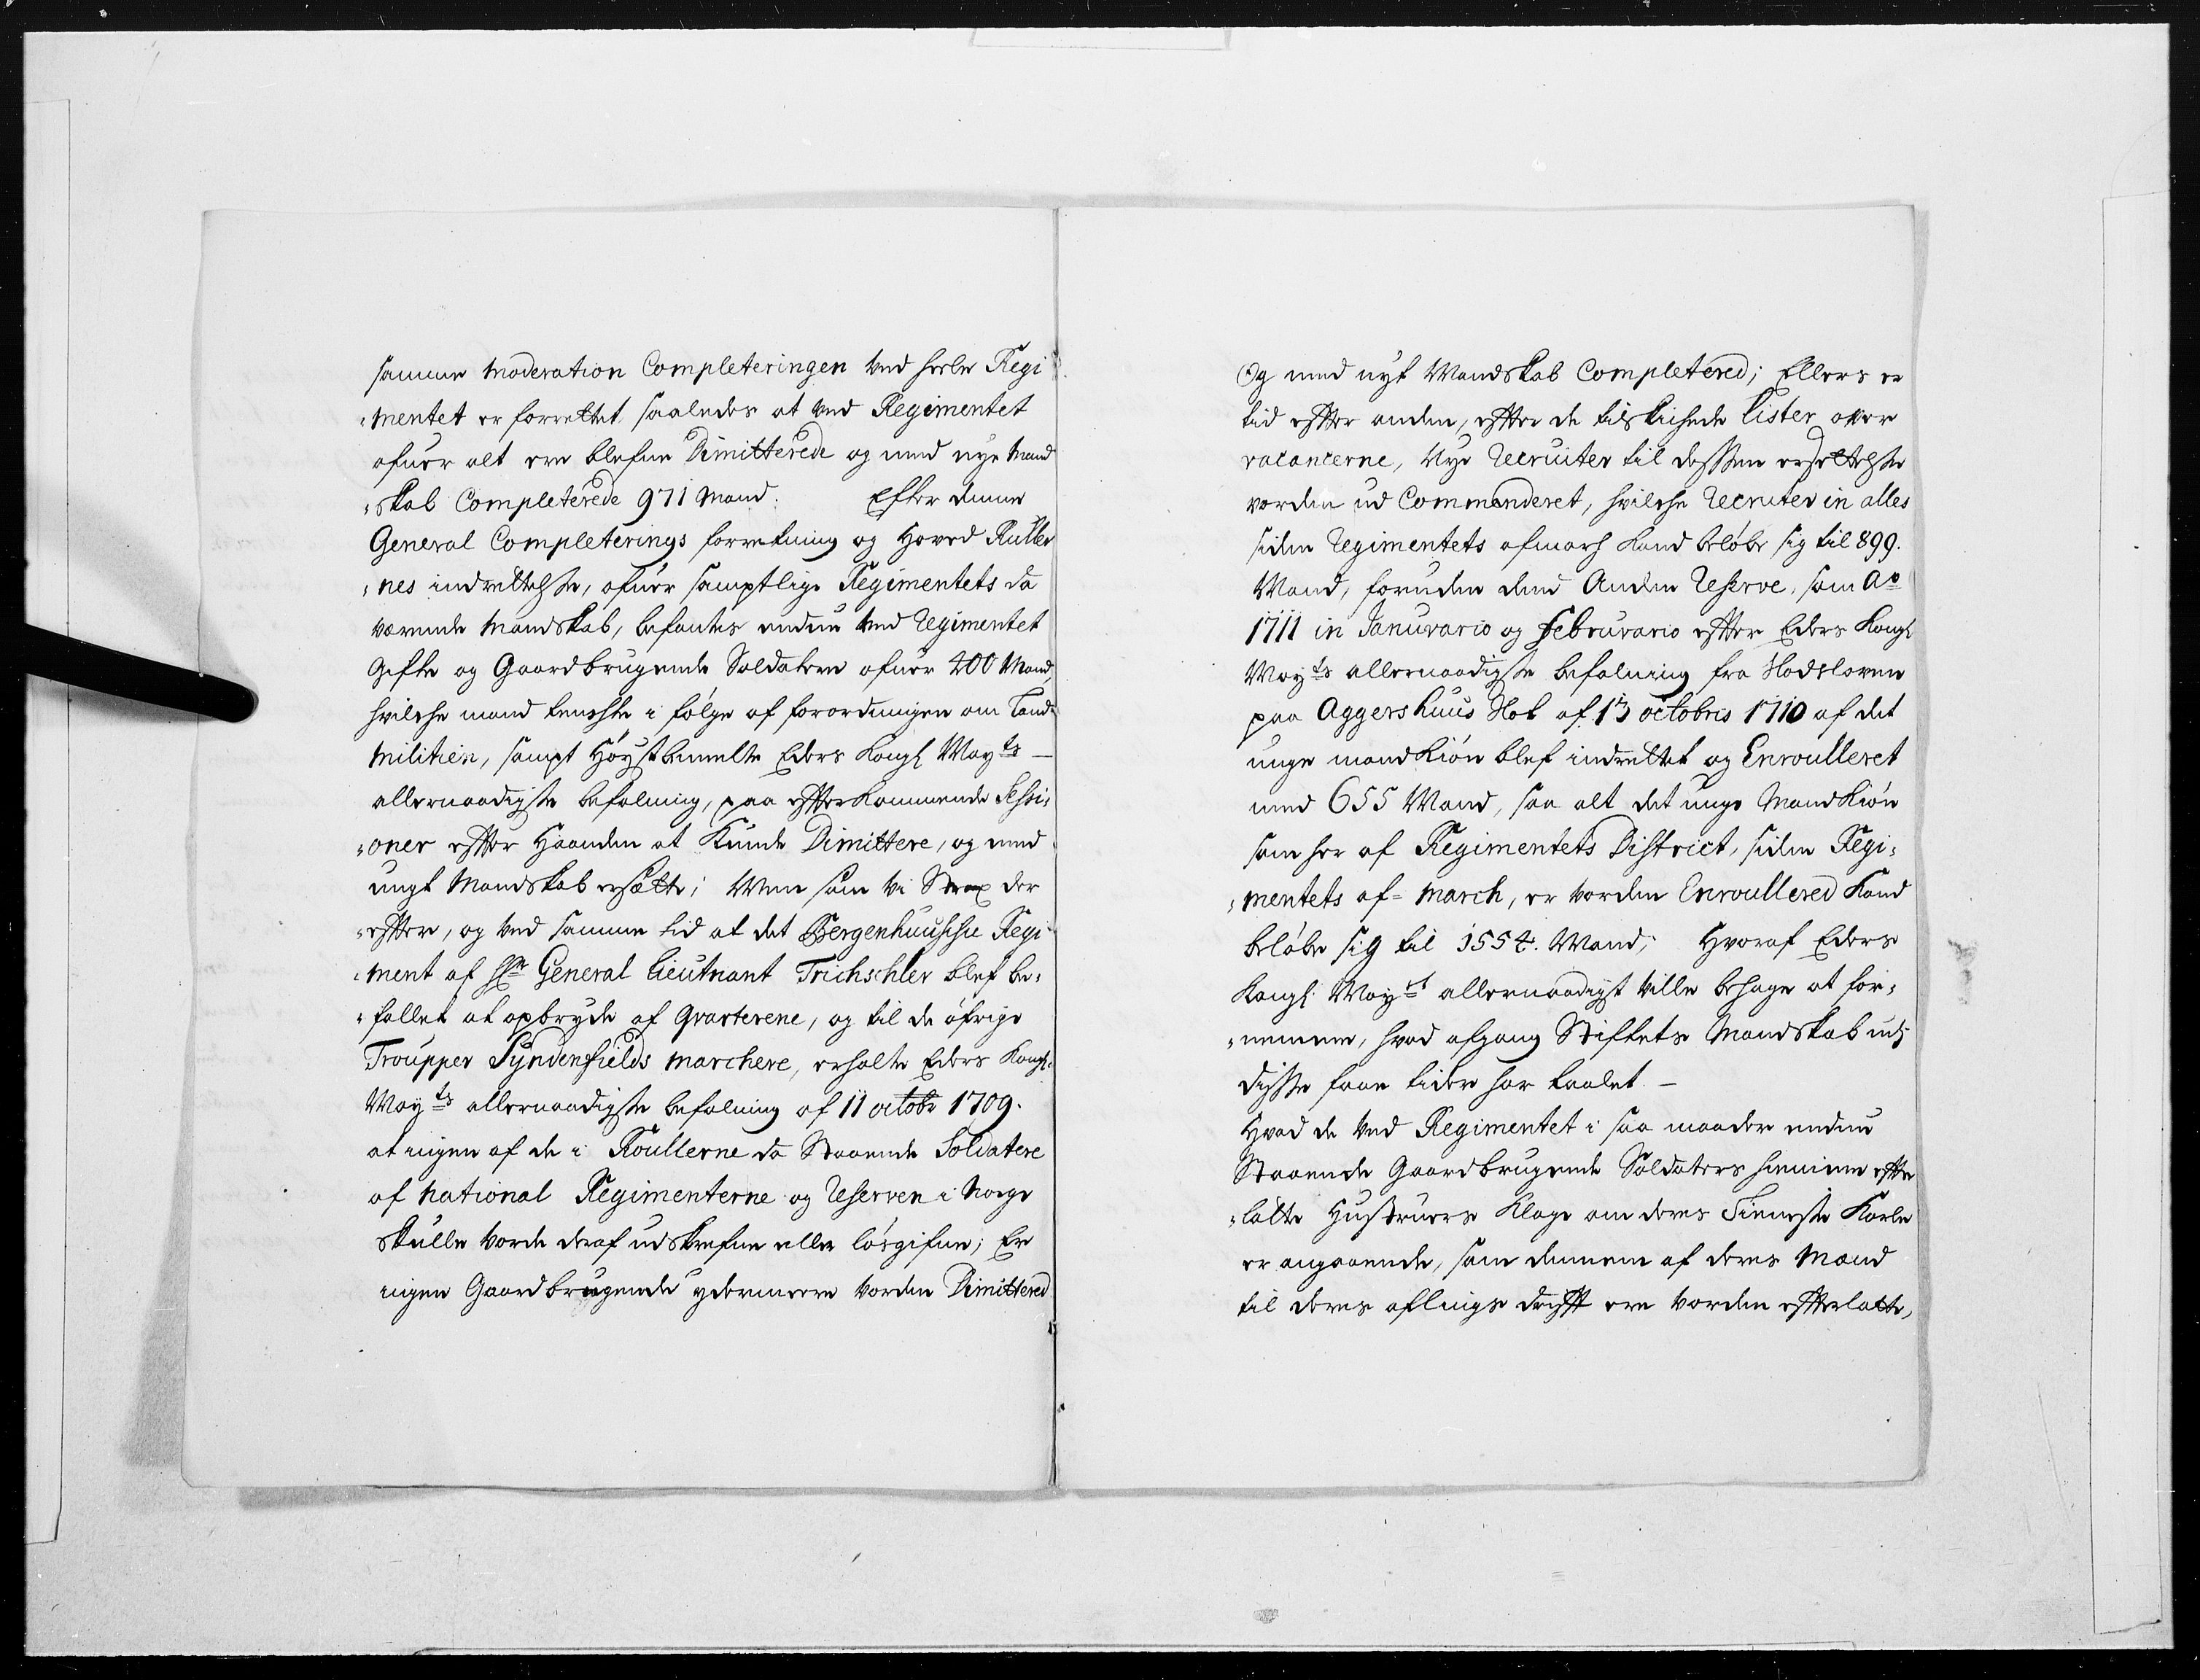 samme Moderation Completeringen ved heele Regi
mentet er forrettet, saaledes at ved Regimentet
ofver alt ere blefne Dimitterede og med nye Mand
skab Completerede 971 Mand. Efter denne
General Completerings forretning og Hoved Ruller
nes indrettelsse, ofver samptlige Regimentets da
værende Mandskab, befantes endnu ved Regimentet
Gifte og Gaardbrugende Soldatere ofver 400 Mand,
hvilche mand tenchte i følge af forordningen om Land
Militien, sampt Høystbemelte Eders Kongl Mayts
allernaadigste befalning, paa efterkommende Sessi
oner efter Haanden at Kunde Dimittere, og med
ungt Mandskab ersætte; Men som vi Strax der
efter, og ved samme tid at det Bergenhuussche Regi
ment af Hrn General Lieutnant Trichschler blef be
fallet at opbryde af Qvarterene, og til de øfrige
Troupper Syndenfields marchere, erholte Eders Kongl
Mayts allernaadigste befalning af 11 octobr 1709.
at ingen af de i Roullerne da Staaende Soldatere
af National Regimenterne og Reserven i Norge
skulle vorde deraf udskrefne eller løsgifne; Er
ingen Gaardbrugende ydermeere vorden Dimittered
Og med nyt Mandskab Completered; Ellers er
tid efter anden, efter de tilskichede Lister over
vacancerne, Nye Recruiter til dessen ersettelsse
vorden ud Commanderet, hvilche Recruter in alles
siden Regimentets afmarch Kand beløbe sig til 899.
Mand, foruden dend Anden Reserve, som Ao
1711 in Januvario og Februvario efter Eders Kongl
Mayts allernaadigste befalning fra
paa Aggershuus Slot af 13 octobris 1710 af det
unge mandkiøn blef indrettet og Enroulleret
med 655 Mand, saa alt det unge Mandkiøn
som her af Regimentets District, siden Regi
mentets af-March, er vorden Enroullered Kand
beløbe sig til 1554. Mand, Hvoraf Eders
Kongl Mayet allernaadigst ville behage at for
nemme, hvad afgang Stiftets Mandskab udj
disse faae tider har taalet. -
Hvad de ved Regimentet i saa maader endnu
Staaende Gaardbrugende Soldaters hiemme efter
latte Hustruers Klage om deres Tienneste Karle
er angaaende, som dennem af deres Mænd
til deres aflings drifft ere vorden efterlatte,